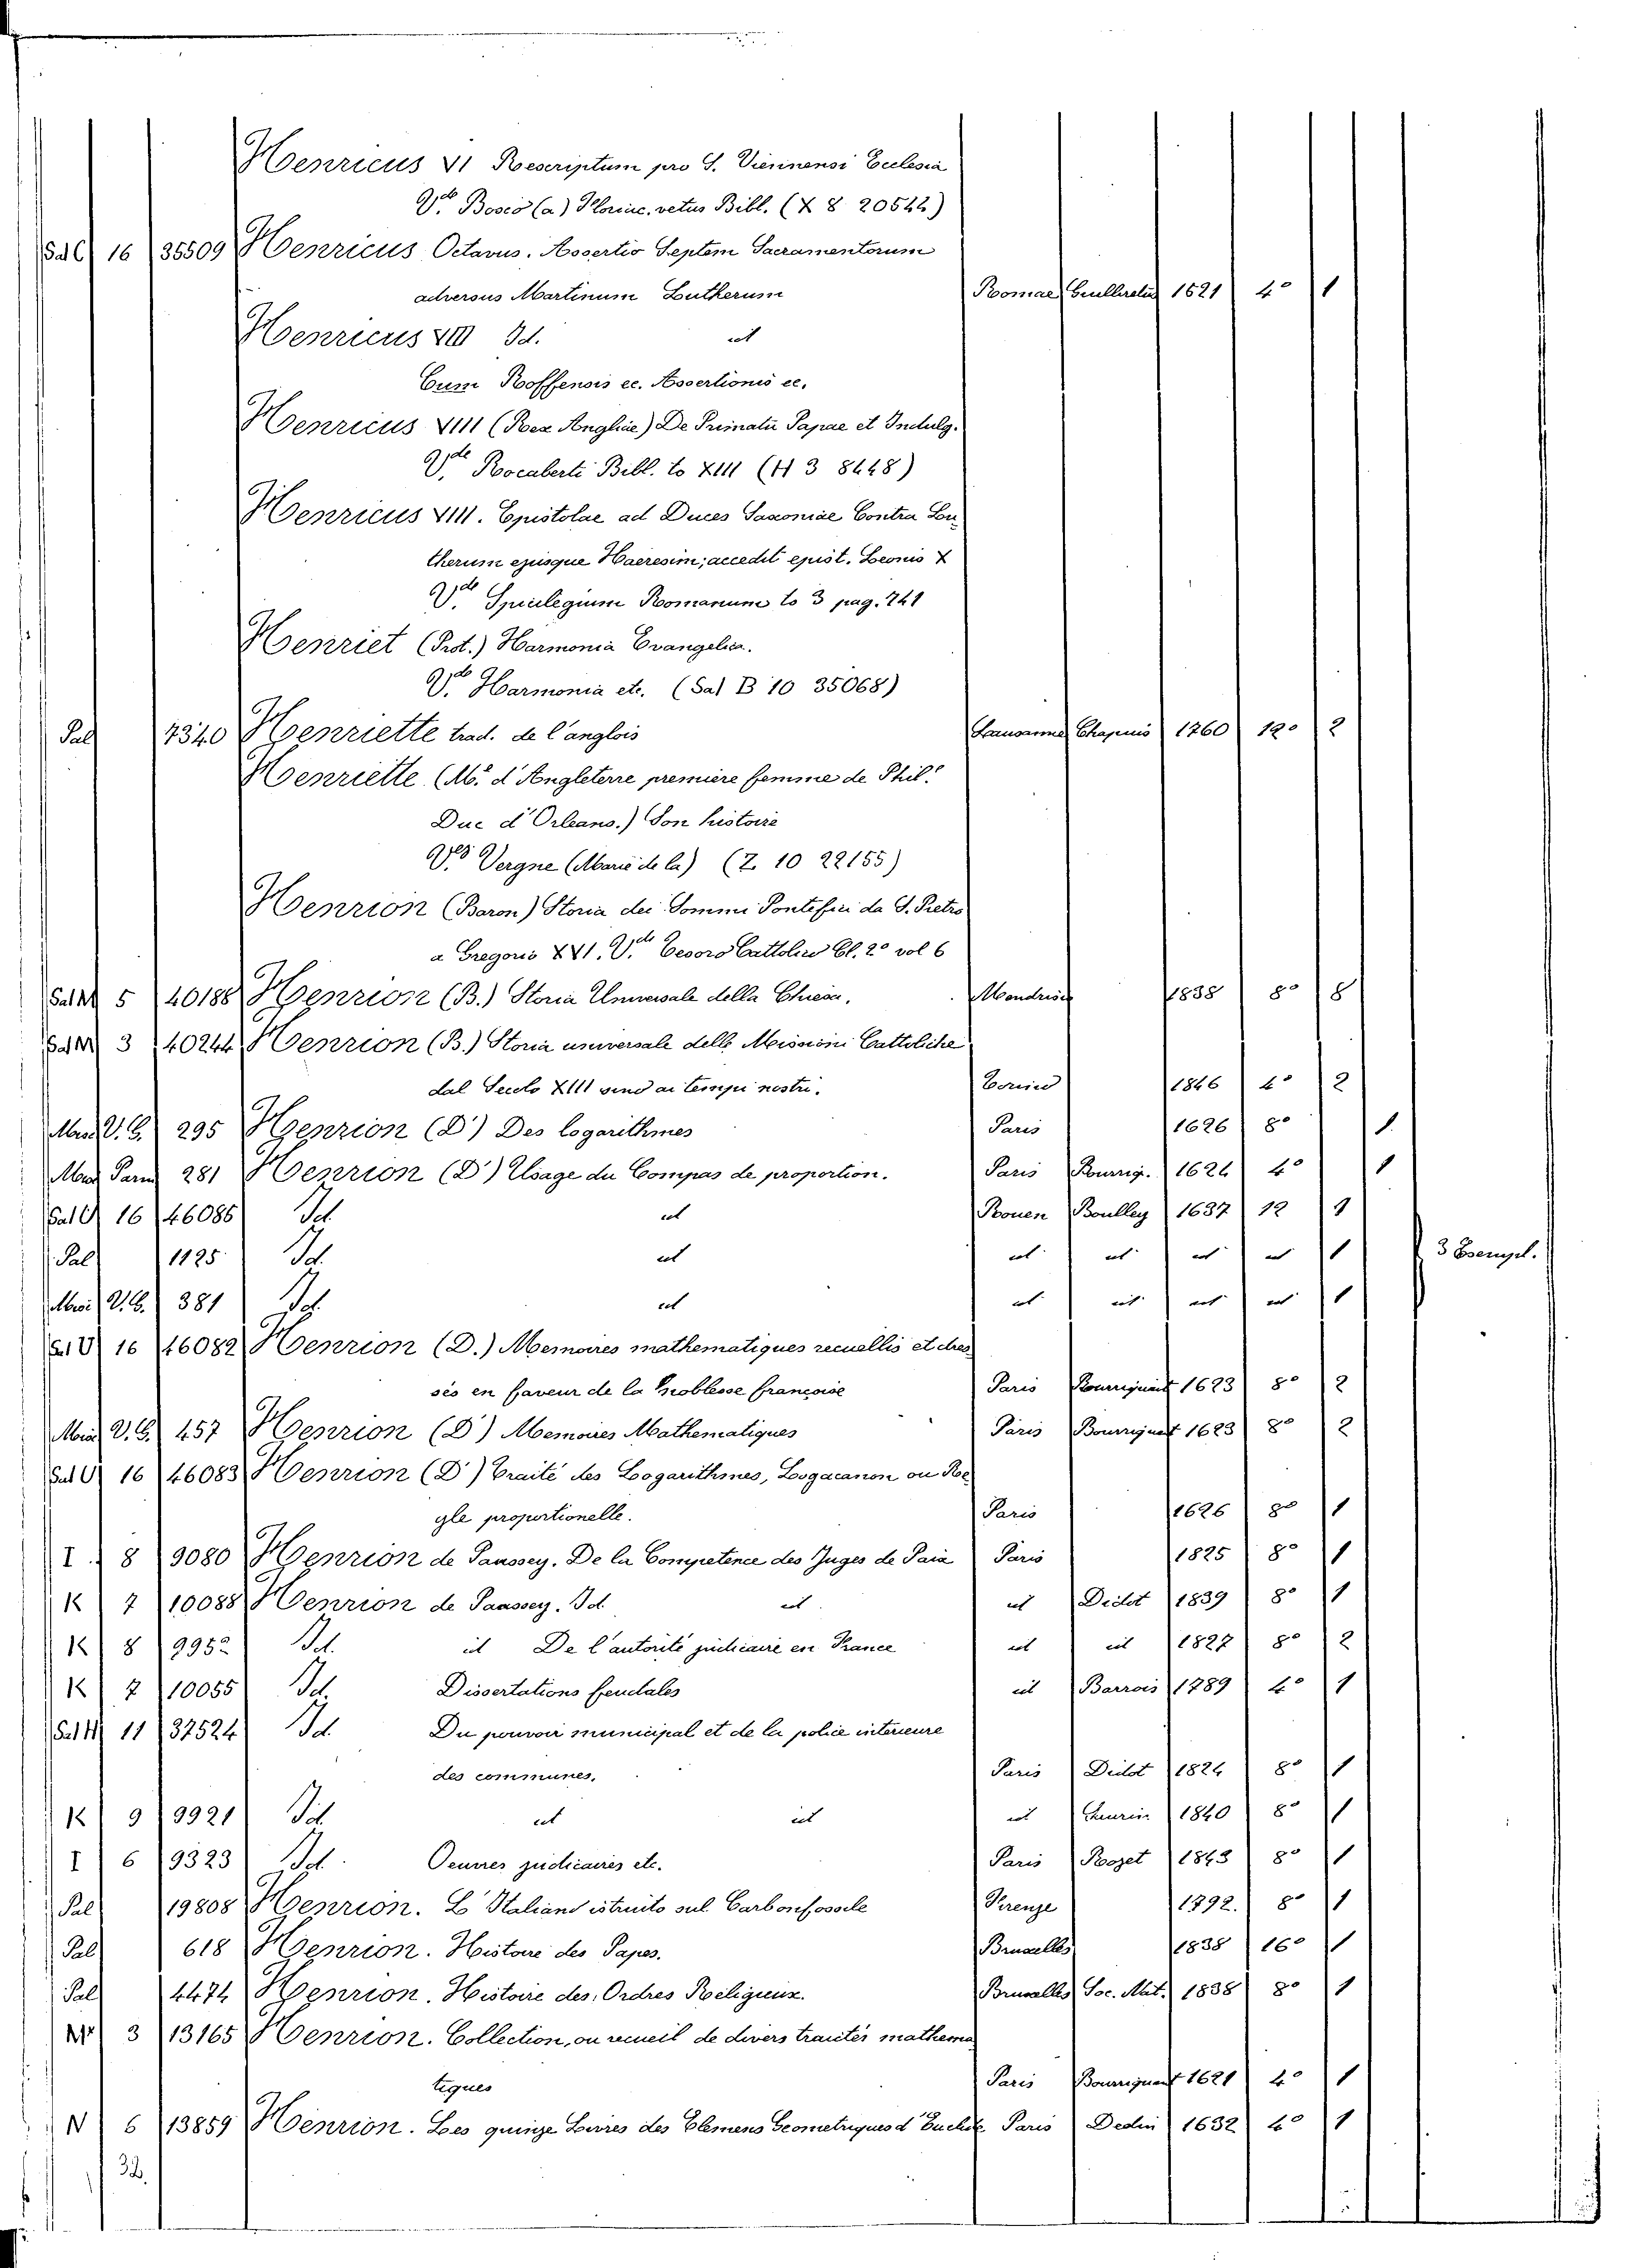 Henricus VI Rescriptum pro S. Viennensi Ecclesia
V.de Bosco (a) Floriac. vetus Bibl. (X 8 20544)
Sal C 16 35509 Henricus Octavus. Assertio Septem Sacramentorum
adversus Martinum Lutherum Romae 1521 4º 1
Henricus VIII Id. id
Cum Roffensis ec. Assertionis ec.
Henricus VIII (Rex Angliae) De Primatu Papae et Indulg.
V.de Rocaberti Bibl. to XIII (H 3 8448)
Henricus VIII. Epistolae ad Duces Saxoniae Contra Lu
therum ejusque Haeresim; accedit epist. Leonis X
V.de Spicilegium Romanum to 3 pag. 741
Henriet (Prot.) Harmonia Evangelica.
V.de Harmonia etc. (Sal B 10 35068)
Pal 7340 Henriette trad. de l'anglois Lausanne Chapuis 1760 12º 2
Henriette (M.e d'Angleterre première femme de Phil.e
Duc d'Orleans.) Son histoire
V.de Vergne (Marie de la) (Z 10 22155)
Henrion (Baron) Storia dei Sommi Pontefici da S. Pietro
a Gregorio XVI. V.de Tesoro Cattolico Cl. 2º vol 6
Sal M 5 40188 Henrion (B.) Storia Universale della Chiesa. Mendrisio 1838 8º 8
Sal M 3 40244 Henrion (B.) Storia universale delle Missioni Cattoliche
dal Secolo XIII sino ai tempi nostri. Torino 1846 4º 2
V. G. 295 Henrion (D.) Des logarithmes Paris 1626 8º 1
281 Henrion (D.) Usage du Compas de proportion. Paris Bourrig. 1624 4º 1
Sal U 16 46086 Id. id Rouen Boulley 1637 12 1
Pal 1125 Id. id id id id id 1 3 Esempl.
V. G. 381 Id. id id id id id 1
Sal U 16 46082 Henrion (D.) Memoires mathematiques recuellis et dres
sés en faveur de la Noblesse françoise Paris Bourriquant 1623 8º 2
V. G. 457 Henrion (D.) Memoires Mathematiques Paris Bourriquant 1623 8º 2
Sal U 16 46083 Henrion (D.) Traité des Logarithmes, Logacanon ou Re
gle proportionelle. Paris 1626 8º 1
I 8 9080 Henrion de Panssey. De la Competence des Juges de Paix Paris 1825 8º 1
K 7 10088 Henrion de Paassey. Id. id id Didot 1839 8º 1
K 8 9952 Id. id De l'autorité judiciaire en France id id 1827 8º 2
K 7 10055 Id. Dissertations feudales id Barrois 1789 4º 1
Sal H 11 37524 Id. Du pouvoir municipal et de la police interieure
des communes. Paris Didot 1824 8º 1
K 9 9921 Id. id id id 1840 8º 1
I 6 9323 Id. Oeuvres judiciaires etc. Paris Rozet 1843 8º 1
Pal 19808 Henrion. L'Italiano istruito sul Carbonfossile Firenze 1792. 8º 1
Pal 618 Henrion. Histoire des Papes. Bruxelles 1838 16º 1
Pal 4474 Henrion. Histoire des Ordres Religieux. Bruxelles Soc. Nat. 1838 8º 1
3 13165 Henrion. Collection, ou recueil de divers traités mathema
tiques Paris Bourriquant 1621 4º 1
N 6 13859 Henrion. Les quinze Livres des Elemens Geometriques d'Euclide Paris Dedin 1632 4º 1
32.